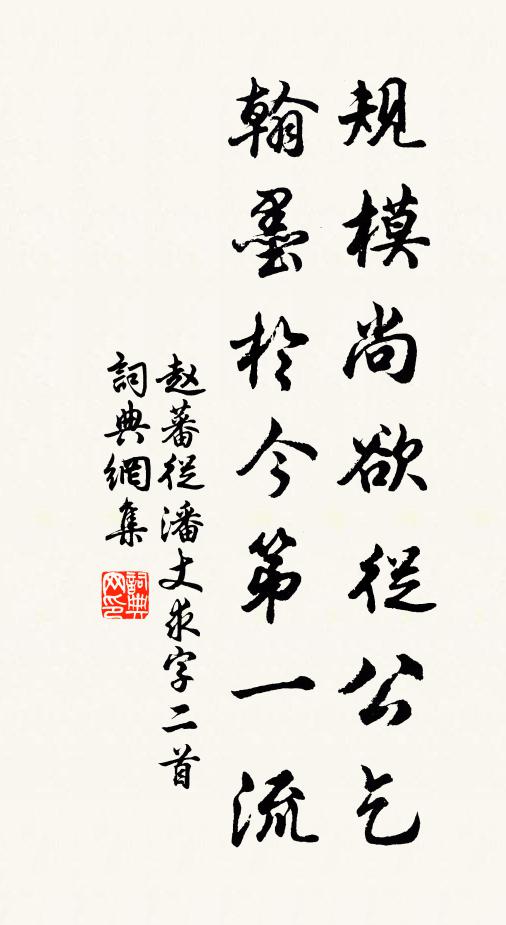 規模尚欲從公乞
翰墨於今第一流
趙蕃從潘丈求字二首
詞典網集
詞典
网印